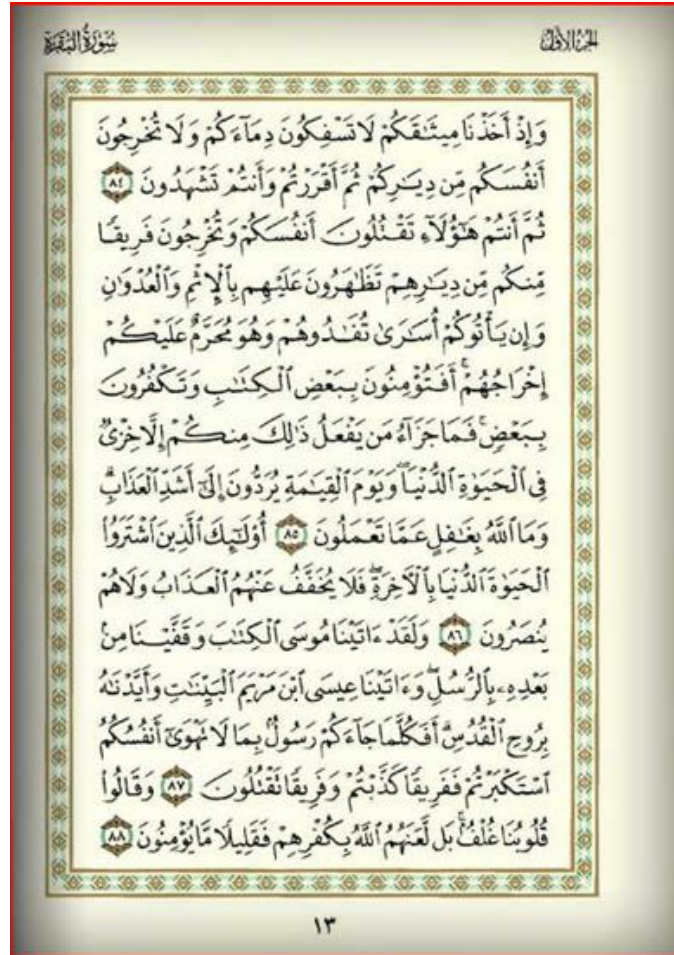 الجزء الأول
سورة البقرة
وَإِذْ أَخَذْنَا مِيثَـٰقَكُمْ لَا تَسْفِكُونَ دِمَآءَكُمْ وَلَا تُخْرِجُونَ
أَنفُسَكُم مِّن دِيَـٰرِكُمْ ثُمَّ أَقْرَرْتُمْ وَأَنتُمْ تَشْهَدُونَ ٨٤
ثُمَّ أَنتُمْ هَـٰٓؤُلَآءِ تَقْتُلُونَ أَنفُسَكُمْ وَتُخْرِجُونَ فَرِيقًا
مِّنكُم مِّن دِيَـٰرِهِمْ تَظَـٰهَرُونَ عَلَيْهِم بِٱلْإِثْمِ وَٱلْعُدْوَٰنِ
وَإِن يَأْتُوكُمْ أُسَـٰرَىٰ تُفَـٰدُوهُمْ وَهُوَ مُحَرَّمٌ عَلَيْكُمْ
إِخْرَاجُهُمْ ۚ أَفَتُؤْمِنُونَ بِبَعْضِ ٱلْكِتَـٰبِ وَتَكْفُرُونَ
بِبَعْضٍ ۚ فَمَا جَزَآءُ مَن يَفْعَلُ ذَٰلِكَ مِنكُمْ إِلَّا خِزْىٌ
فِى ٱلْحَيَوٰةِ ٱلدُّنْيَا ۖ وَيَوْمَ ٱلْقِيَـٰمَةِ يُرَدُّونَ إِلَىٰٓ أَشَدِّ ٱلْعَذَابِ ۗ
وَمَا ٱللَّهُ بِغَـٰفِلٍ عَمَّا تَعْمَلُونَ ٨٥ أُو۟لَـٰٓئِكَ ٱلَّذِينَ ٱشْتَرَوُا۟
ٱلْحَيَوٰةَ ٱلدُّنْيَا بِٱلْـَٔاخِرَةِ ۖ فَلَا يُخَفَّفُ عَنْهُمُ ٱلْعَذَابُ وَلَا هُمْ
يُنصَرُونَ ٨٦ وَلَقَدْ ءَاتَيْنَا مُوسَى ٱلْكِتَـٰبَ وَقَفَّيْنَا مِنۢ
بَعْدِهِۦ بِٱلرُّسُلِ ۖ وَءَاتَيْنَا عِيسَى ٱبْنَ مَرْيَمَ ٱلْبَيِّنَـٰتِ وَأَيَّدْنَـٰهُ
بِرُوحِ ٱلْقُدُسِ ۗ أَفَكُلَّمَا جَآءَكُمْ رَسُولٌۢ بِمَا لَا تَهْوَىٰٓ أَنفُسُكُمُ
ٱسْتَكْبَرْتُمْ فَفَرِيقًا كَذَّبْتُمْ وَفَرِيقًا تَقْتُلُونَ ٨٧ وَقَالُوا۟
قُلُوبُنَا غُلْفٌۢ ۚ بَل لَّعَنَهُمُ ٱللَّهُ بِكُفْرِهِمْ فَقَلِيلًا مَّا يُؤْمِنُونَ ٨٨
١٣